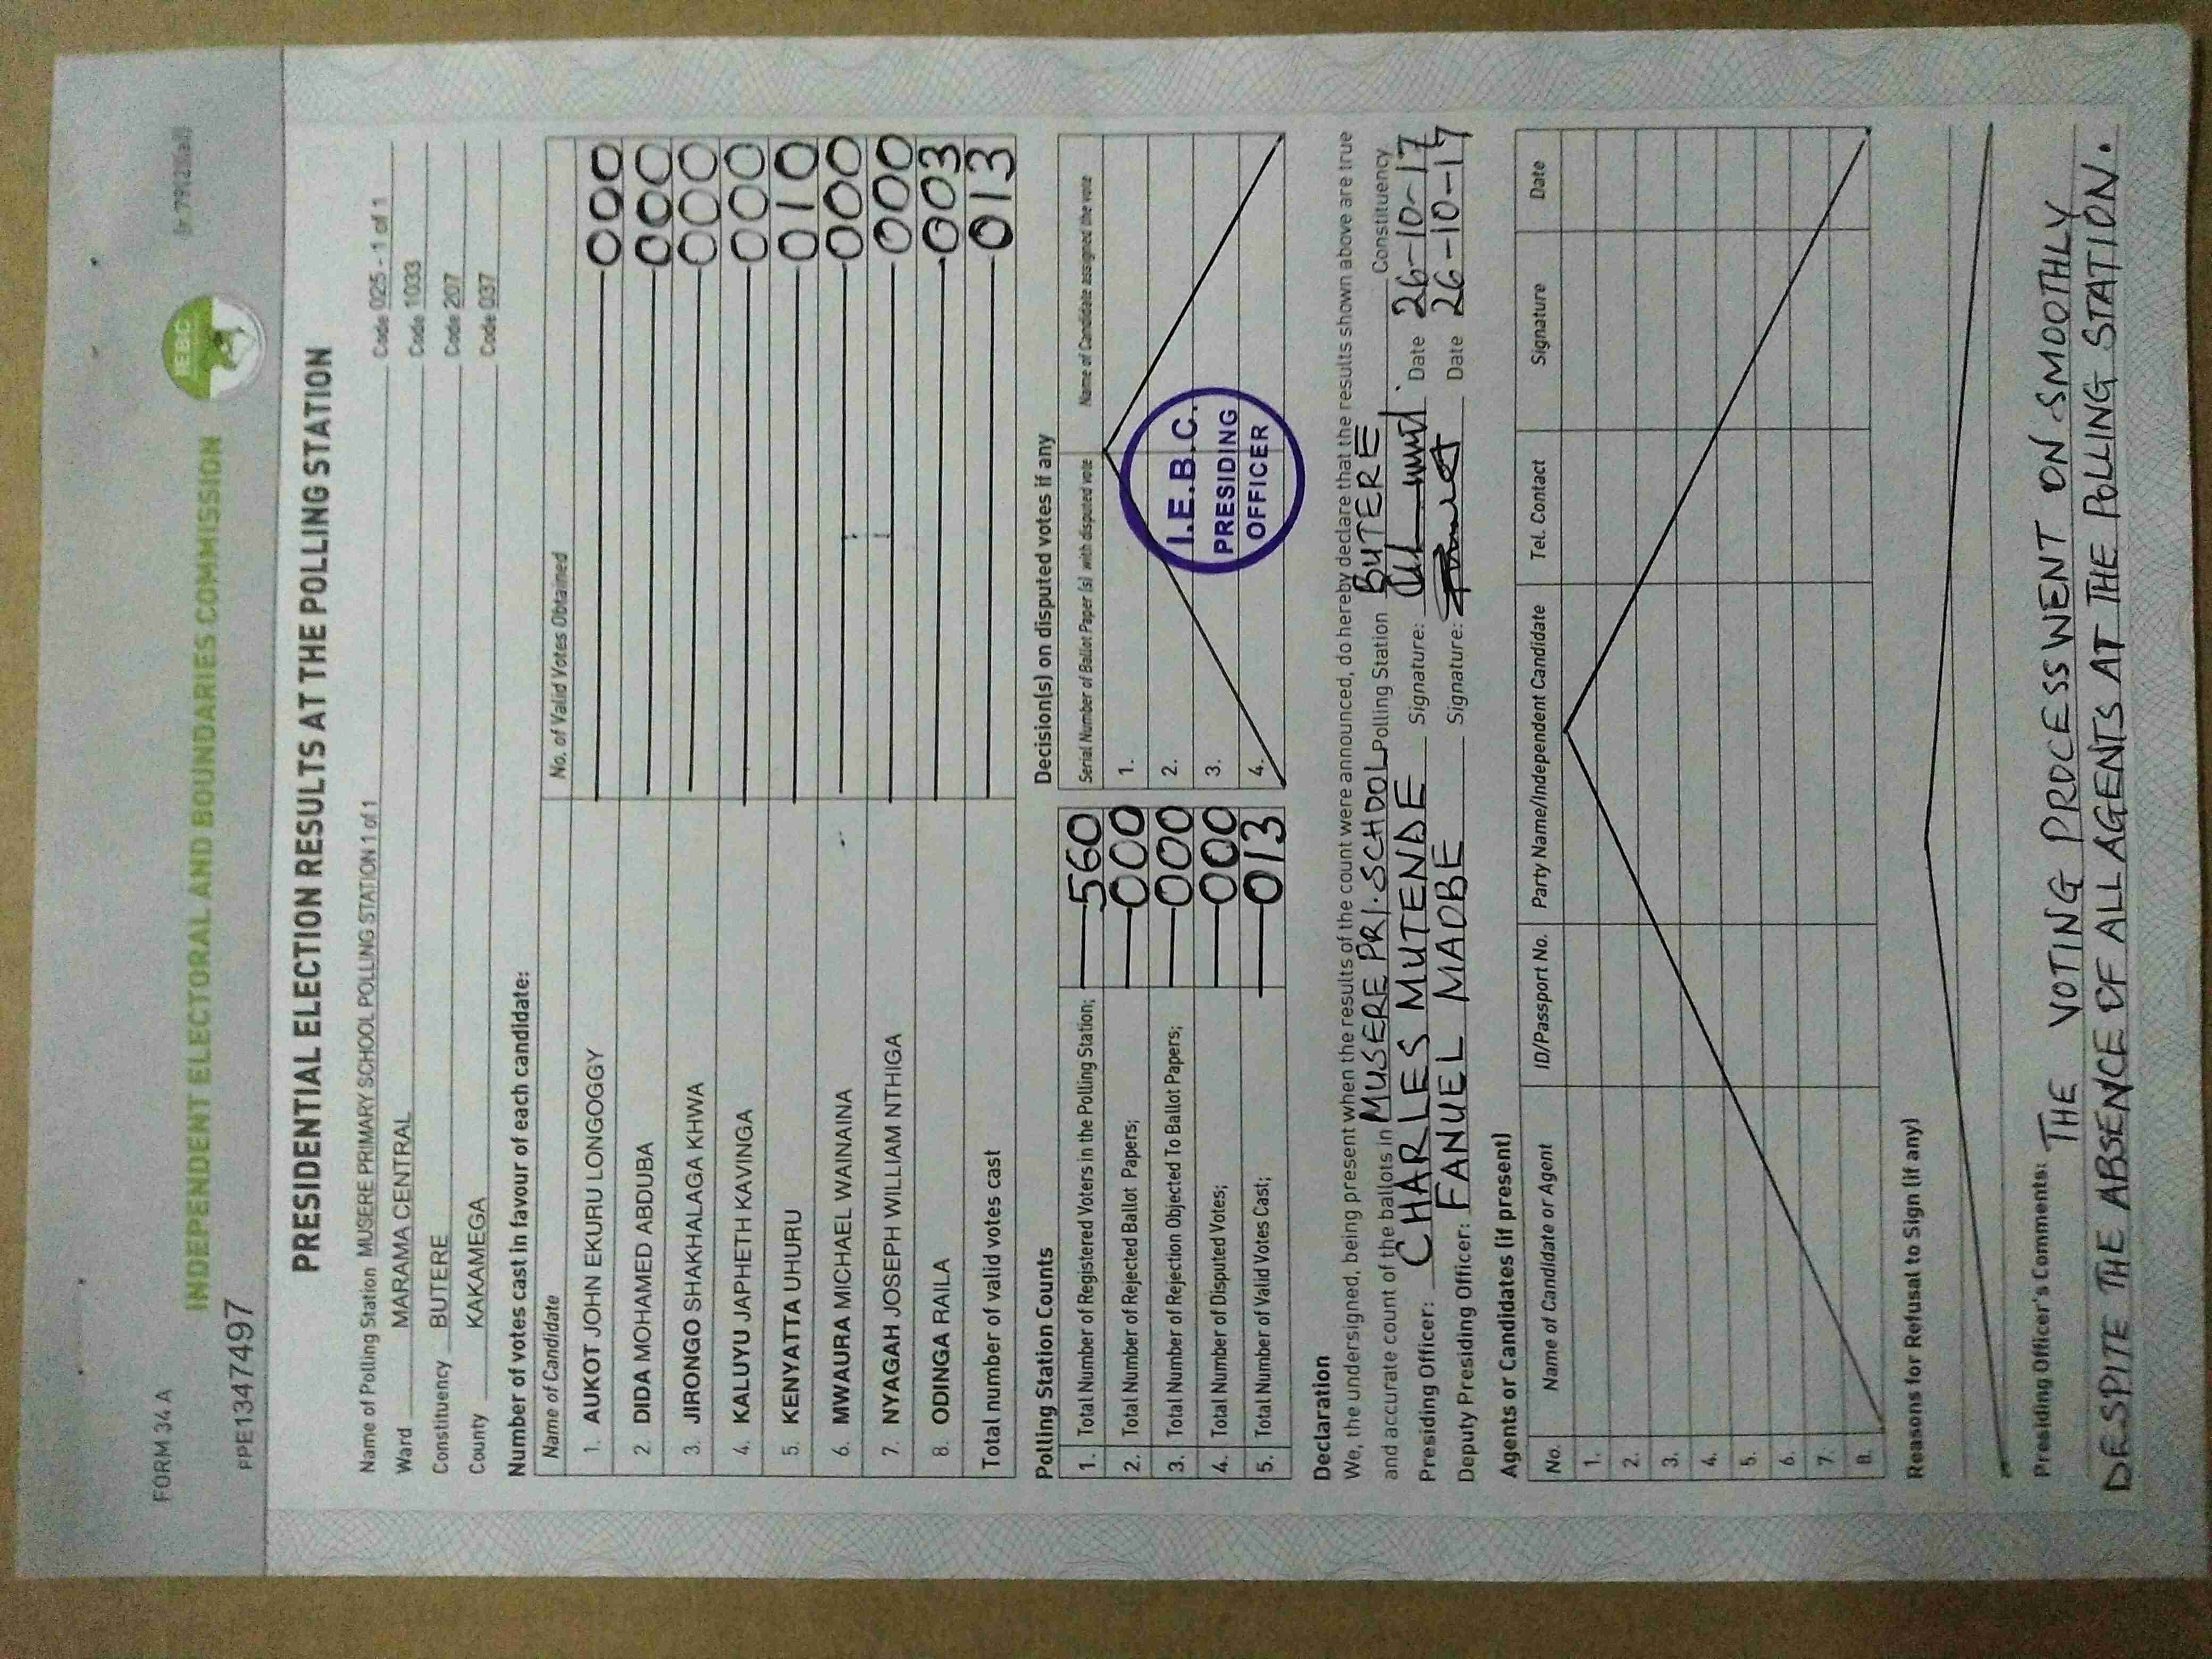 FORM 34 A
INDEPENDENT ELECTORAL AND BOUNDARIES COMMISSION
IEBC
PPE1347497
PRESIDENTIAL ELECTION RESULTS AT THE POLLING STATION
Name of Polling Station MUSERE PRIMARY SCHOOL POLLING STATION 1 of 1 Code 025 - 1 of 1
Ward MARAMA CENTRAL Code 1033
Constituency BUTERE Code 207
County KAKAMEGA Code 037
Number of votes cast in favour of each candidate:
Name of Candidate No. of Valid Votes Obtained
1. AUKOT JOHN EKURU LONGOGGY 000
2. DIDA MOHAMED ABDUBA 000
3. JIRONGO SHAKHALAGA KHWA 000
4. KALUYU JAPHETH KAVINGA 000
5. KENYATTA UHURU 010
6. MWAURA MICHAEL WAINAINA 000
7. NYAGAH JOSEPH WILLIAM NTHIGA 000
8. ODINGA RAILA 003
Total number of valid votes cast 013
Polling Station Counts
1. Total Number of Registered Voters in the Polling Station; 560
2. Total Number of Rejected Ballot Papers; 000
3. Total Number of Rejection Objected To Ballot Papers; 000
4. Total Number of Disputed Votes; 000
5. Total Number of Valid Votes Cast; 013
Decision(s) on disputed votes if any
Serial Number of Ballot Paper (s) with disputed vote Name of Candidate assigned the vote
1.
2.
3.
4.
I.E.B.C.
PRESIDING
OFFICER
Declaration
We, the undersigned, being present when the results of the count were announced, do hereby declare that the results shown above are true
and accurate count of the ballots in MUSERE PRI. SCHOOL Polling Station BUTERE Constituency
Presiding Officer: CHARLES MUTENDE Signature: Date 26-10-17
Deputy Presiding Officer: FANUEL MAOBE Signature: Date 26-10-17
Agents or Candidates (if present)
No. Name of Candidate or Agent ID/Passport No. Party Name/Independent Candidate Tel. Contact Signature Date
1.
2.
3.
4.
5.
6.
7.
8.
Reasons for Refusal to Sign (if any)
Presiding Officer's Comments: THE VOTING PROCESS WENT ON SMOOTHLY
DESPITE THE ABSENCE OF ALL AGENTS AT THE POLLING STATION.